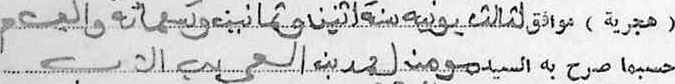 ( هجرية ) موافق لثالث يونيه سنة اثنين وثمانين وتسعمائة والف م
حسبما صرح به السيد محمد بن العربي الاب